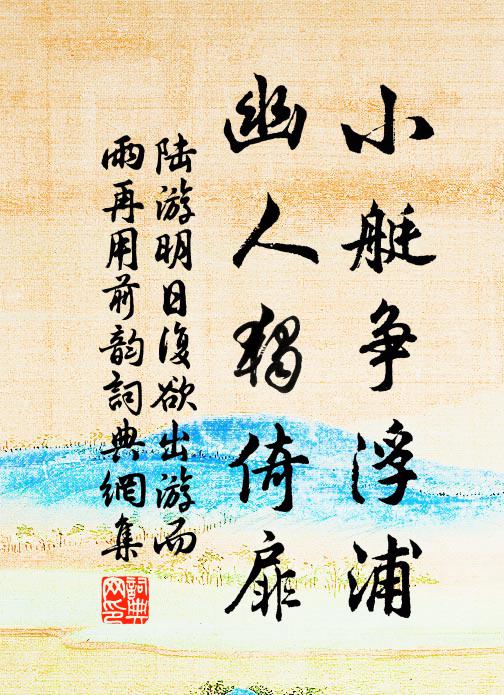 小艇争浮浦
幽人独倚扉
陆游明日復欲出游而
雨再用前韵詞典網集
詞典网印